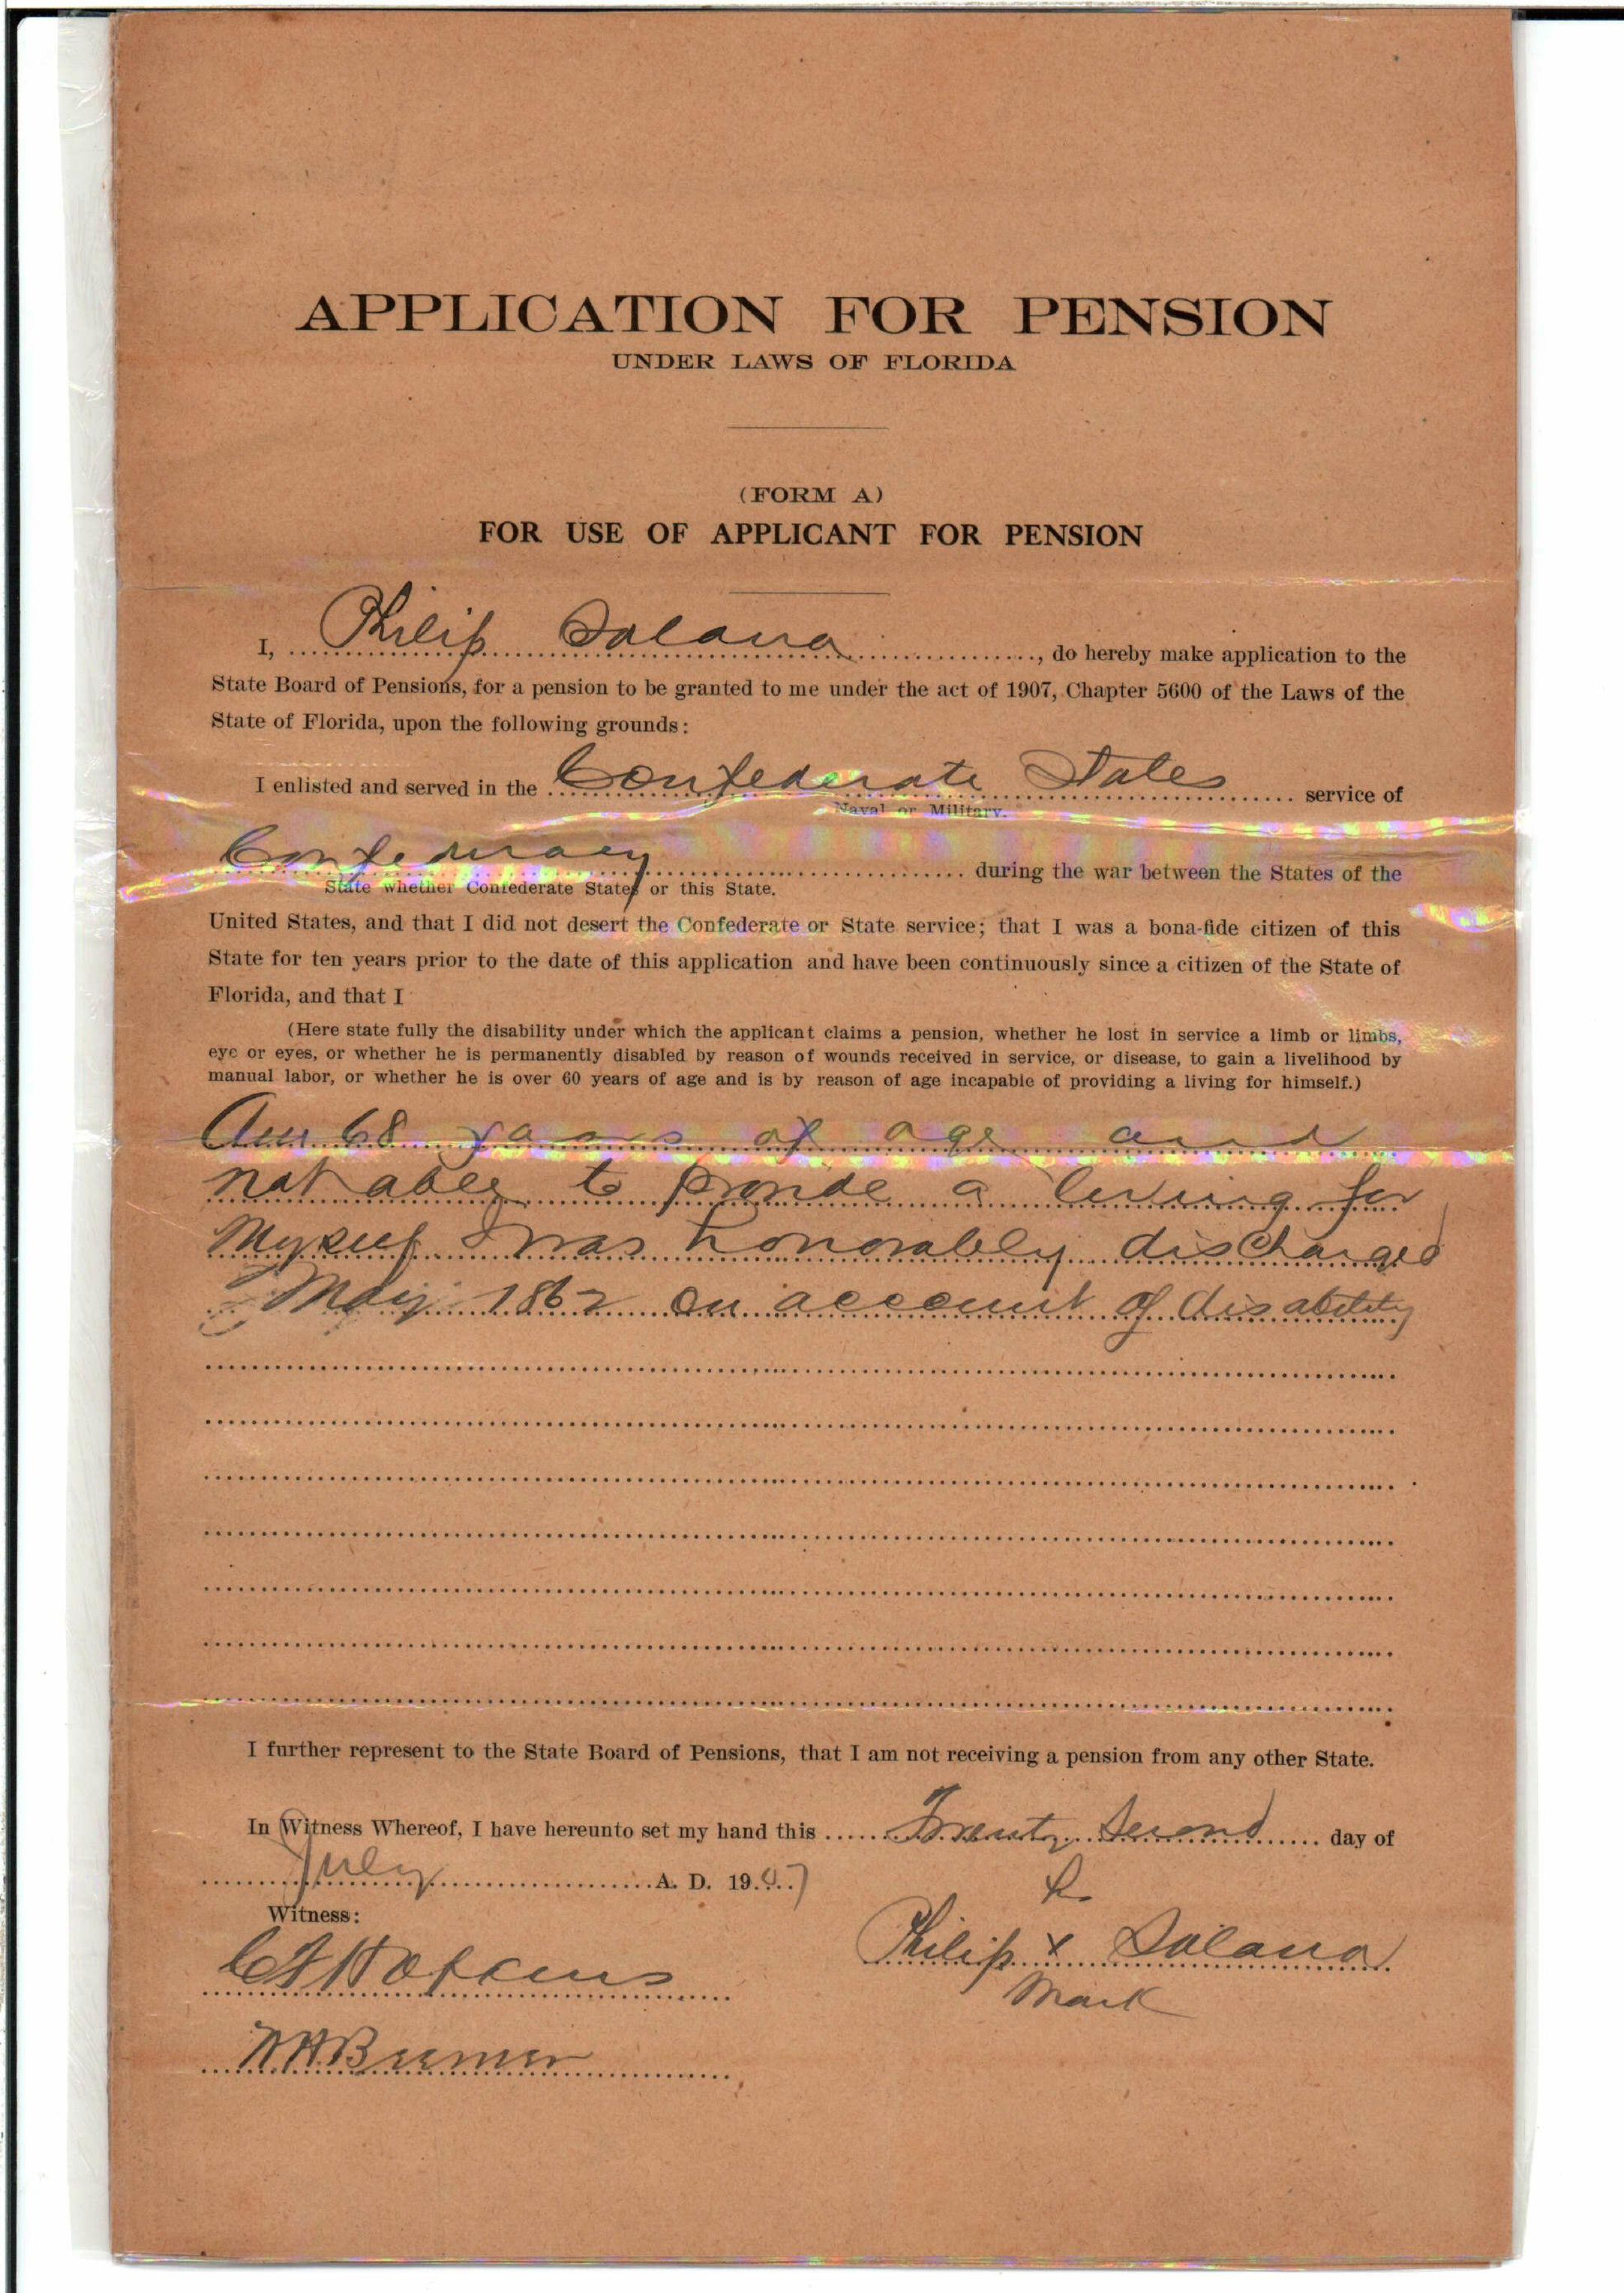 APPLICATION FOR PENSION
UNDER LAWS OF FLORIDA
(FORM A)
FOR USE OF APPLICANT FOR PENSION
I, Philip Solana, do hereby make application to the
State Board of Pensions, for a pension to be granted to me under the act of 1907, Chapter 5600 of the Laws of the
State of Florida, upon the following grounds:
I enlisted and served in the Confederate States service of
Naval or Military.
Confederacy during the war between the States of the
State whether Confederate States or this State.
United States, and that I did not desert the Confederate or State service; that I was a bona-fide citizen of this
State for ten years prior to the date of this application and have been continuously since a citizen of the State of
Florida, and that I
(Here state fully the disability under which the applicant claims a pension, whether he lost in service a limb or limbs,
eye or eyes, or whether he is permanently disabled by reason of wounds received in service, or disease, to gain a livelihood by
manual labor, or whether he is over 60 years of age and is by reason of age incapable of providing a living for himself.)
Am 68 years of age and
not able to provide a living for
Myself I was honorably discharged
May 1862 on account of disability
I further represent to the State Board of Pensions, that I am not receiving a pension from any other State.
In Witness Whereof, I have hereunto set my hand this Twenty Second day of
July A. D. 1907
Witness:
Philip x Solana
Mark